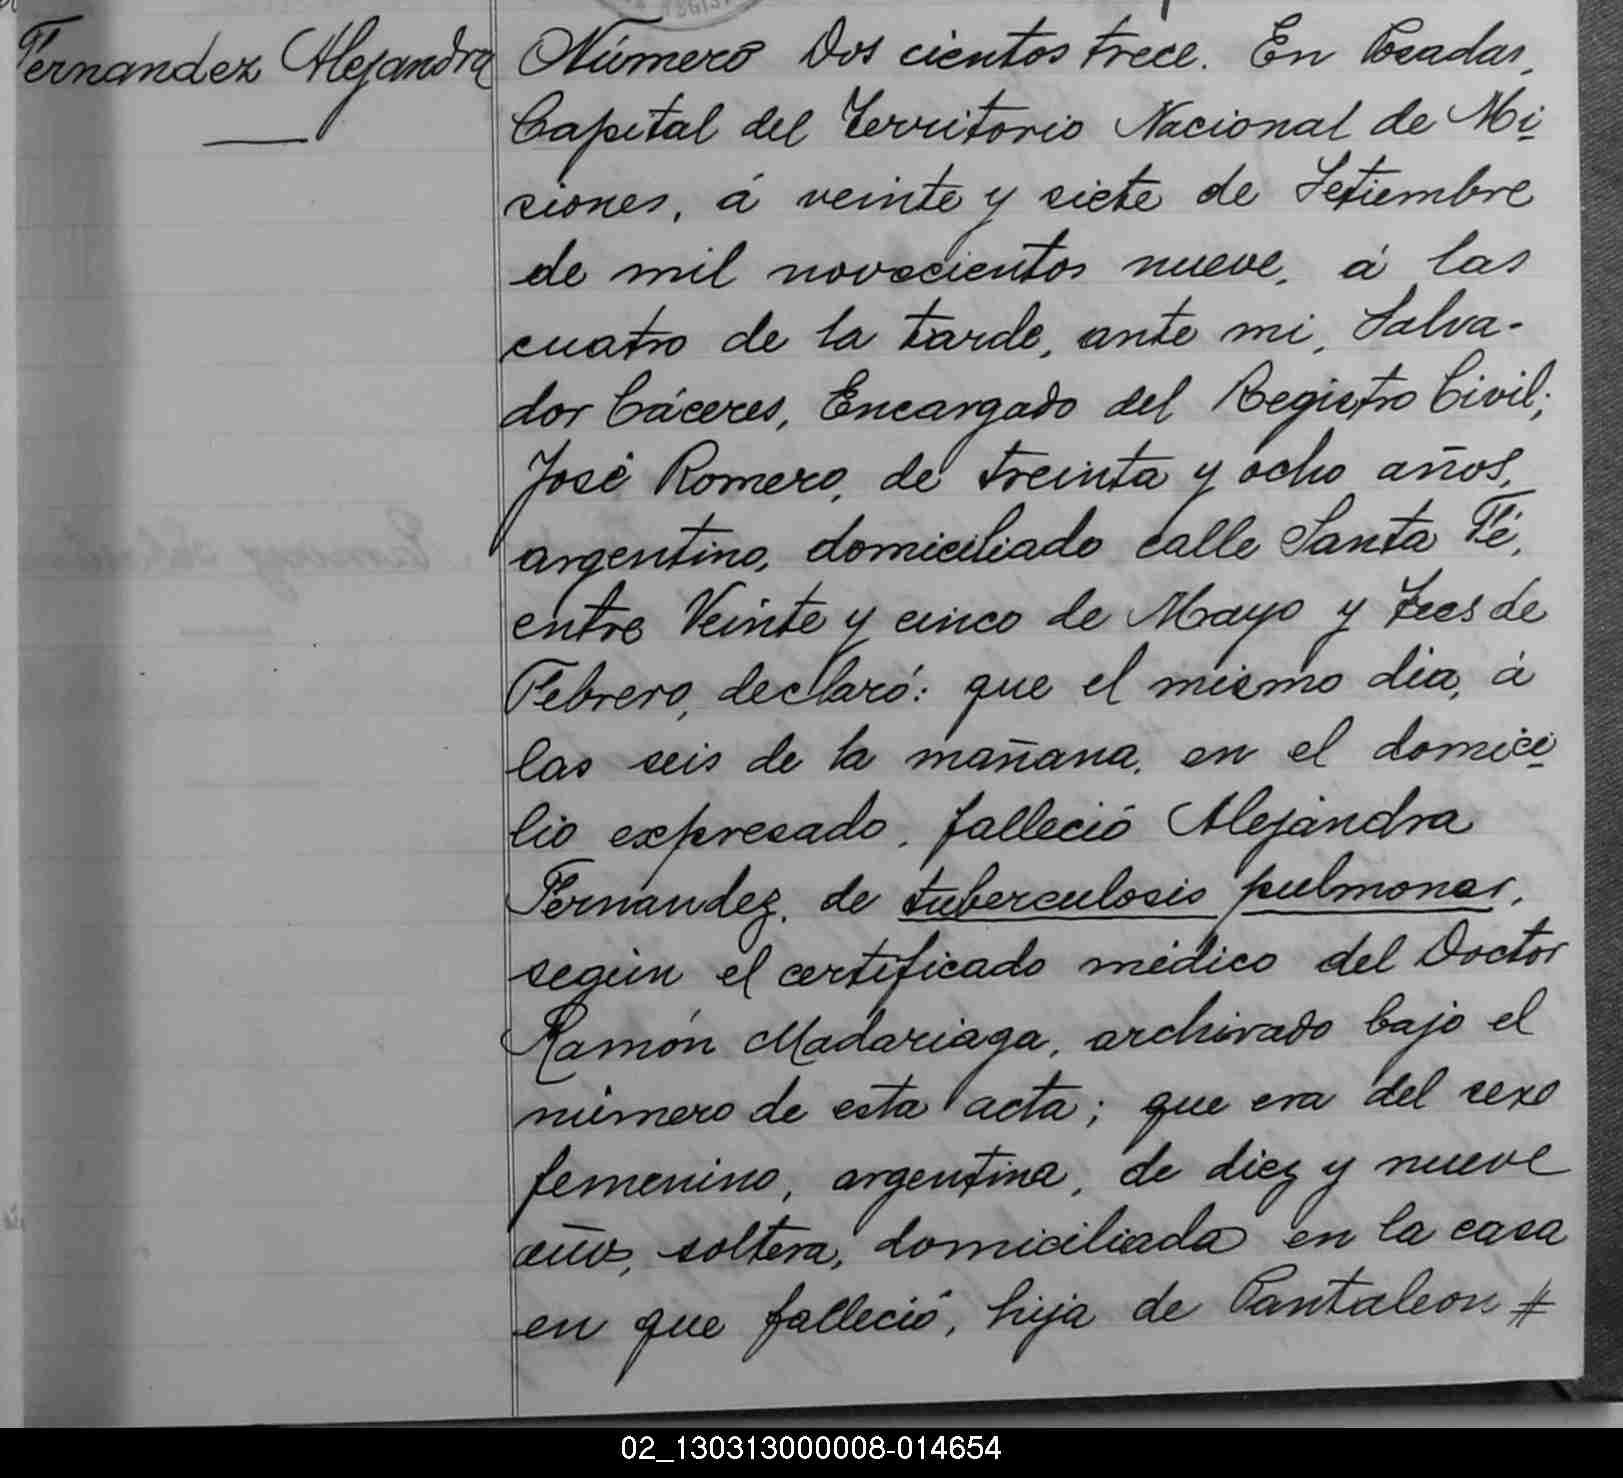 Fernandez Alejandra
Número Dos cientos trece. En Posadas,
Capital del Territorio Nacional de Mi-
siones, á veinte y siete de Setiembre
de mil novecientos nueve, á las
cuatro de la tarde, ante mi, Salva-
dor Cáceres, Encargado del Registro Civil;
José Romero, de treinta y ocho años,
argentino, domiciliado calle Santa Fé,
entre Veinte y cinco de Mayo y Tres de
Febrero, declaró: que el mismo dia, á
las seis de la mañana, en el domici-
lio expresado, falleció Alejandra
Fernandez, de tuberculosis pulmonar,
según el certificado médico del Doctor
Ramón Madariaga, archivado bajo el
número de esta acta; que era del sexo
femenino, argentina, de diez y nueve
años, soltera, domiciliada en la casa
en que falleció, hija de Pantaleon #
02_130313000008-014654